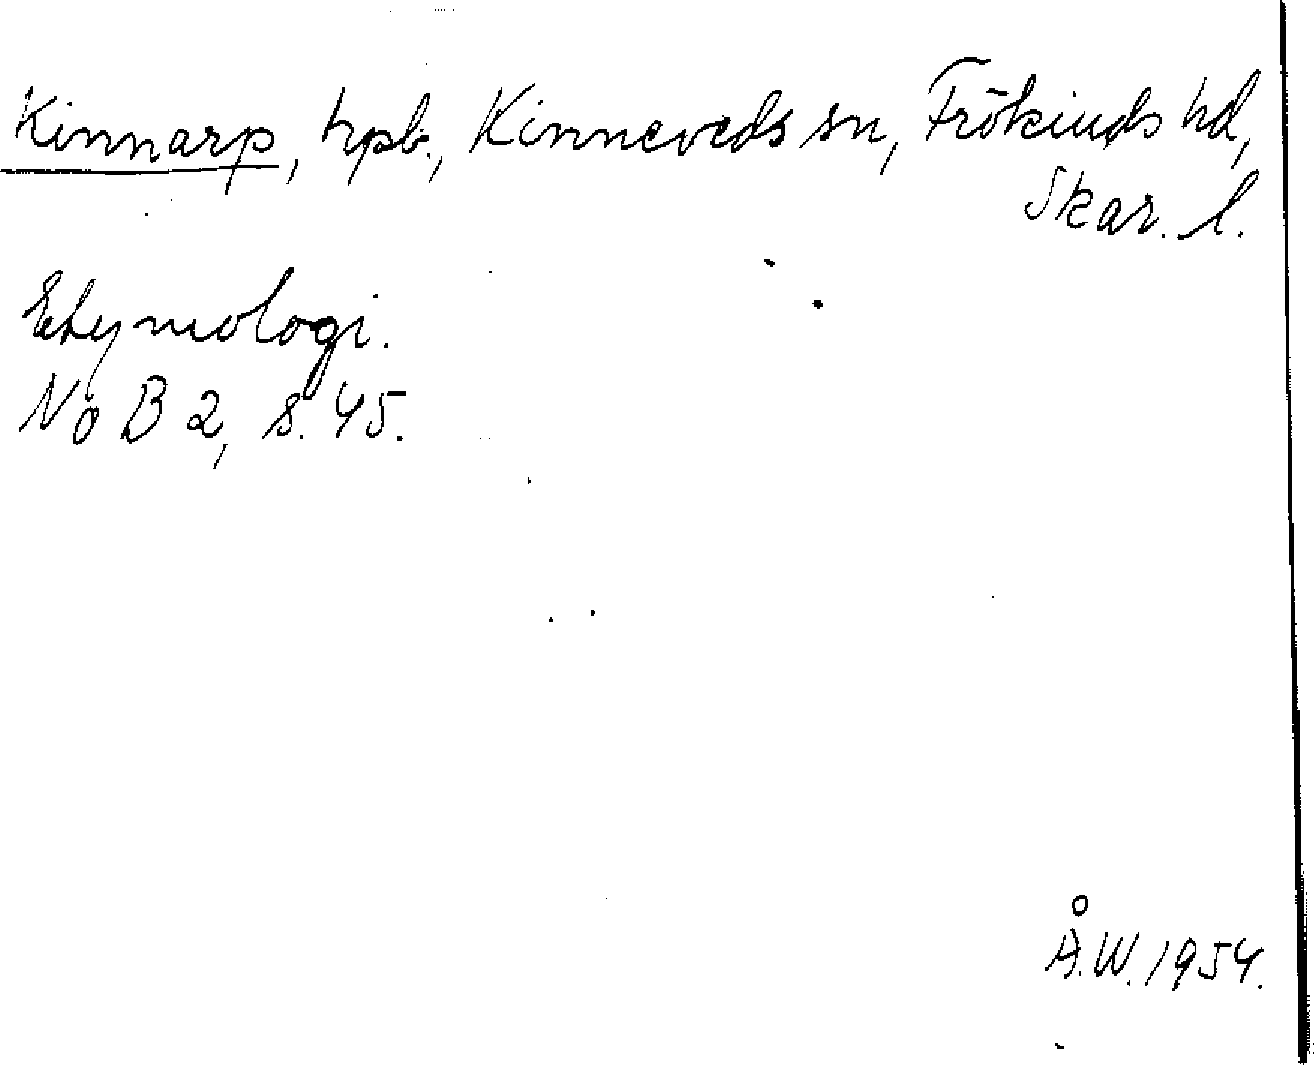 Kinnarp, hpl., Kinneveds sn, Frökinds hd,
Skar. l.
Etymologi.
NoB 2, s. 45.
Å.W. 1954.